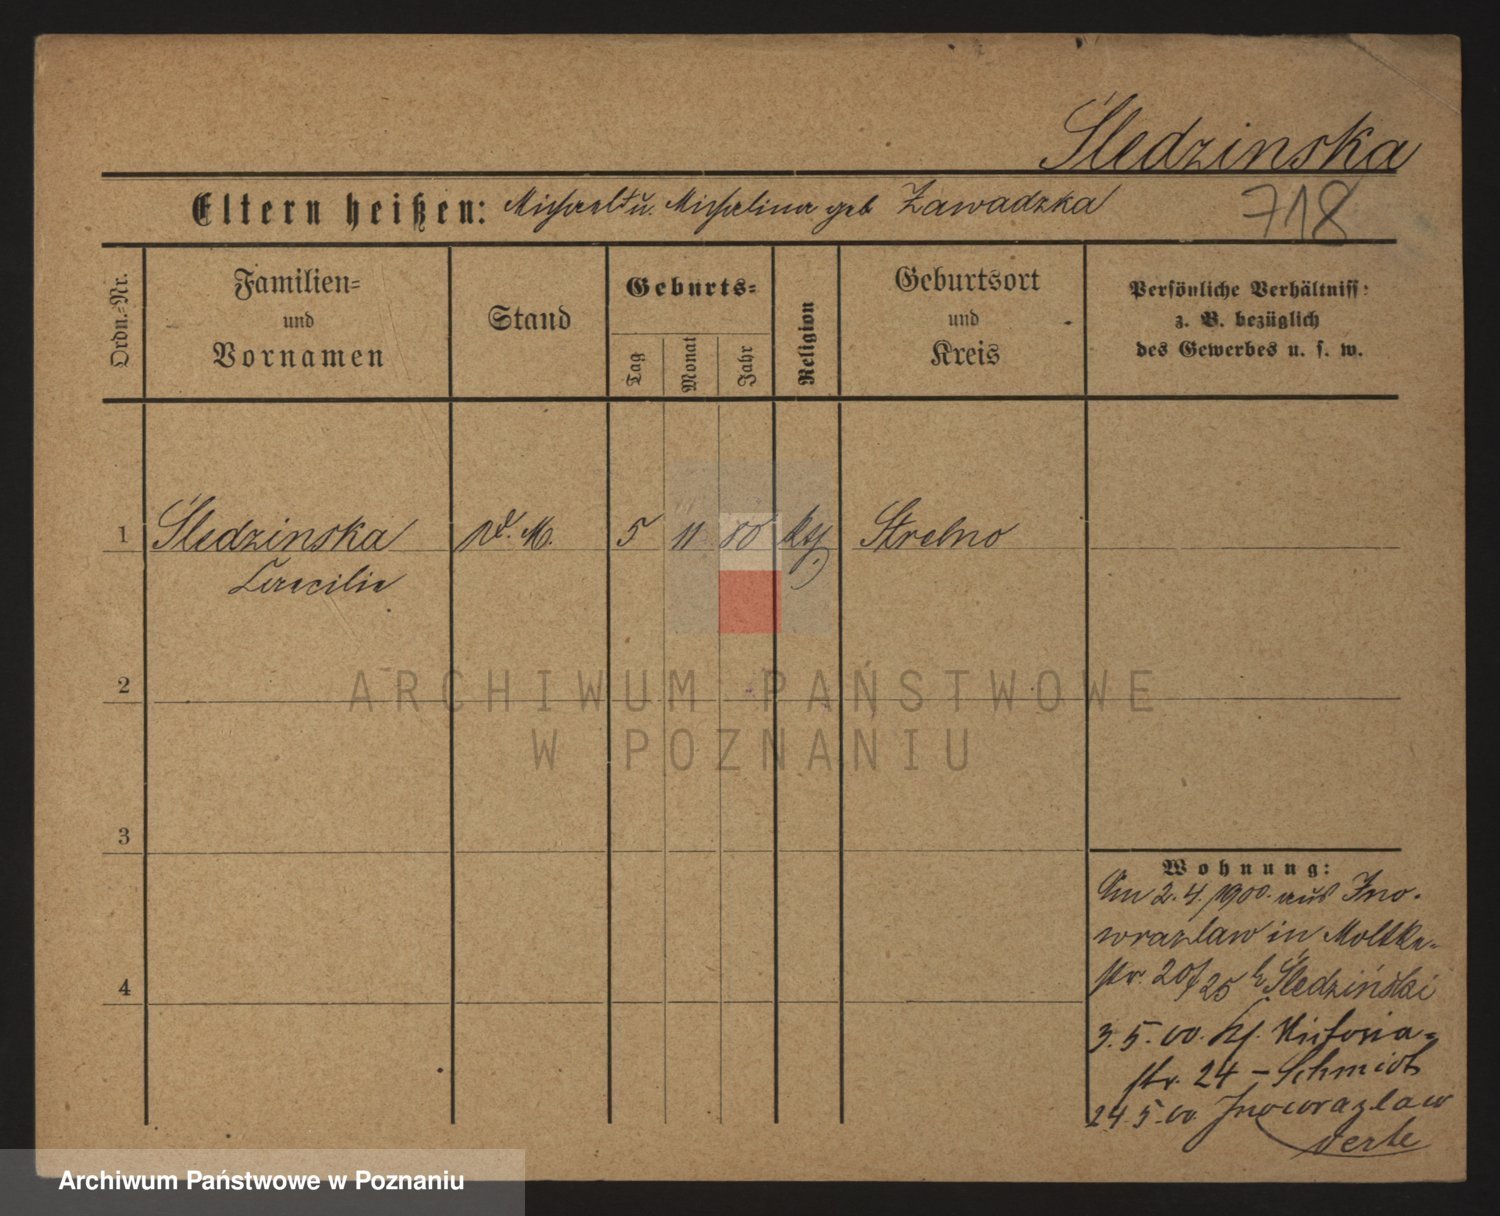 Śledzinska
Eltern heißen: Michael u. Michalina geb Zawadzka
718
Ordn.-Nr.
Familien-
und
Vornamen
Stand
Geburts-
Tag
Monat
Jahr
Religion
Geburtsort
und
Kreis
Persönliche Verhältniss:
z. B. bezüglich
des Gewerbes u. s. w.
1 Śledzinska 5 11 80 Strelno
Caecilie
2
3
4
Wohnung:
Am 2.4.1900. aus Ino-
wrazlaw in Moltke-
str. 20/25 b Śledziński
3.5.00. Victoria-
str. 24 – Schmidt
24.5.00 Inowrazlaw
ARCHIWUM PAŃSTWOWE
W POZNANIU
Archiwum Państwowe w Poznaniu